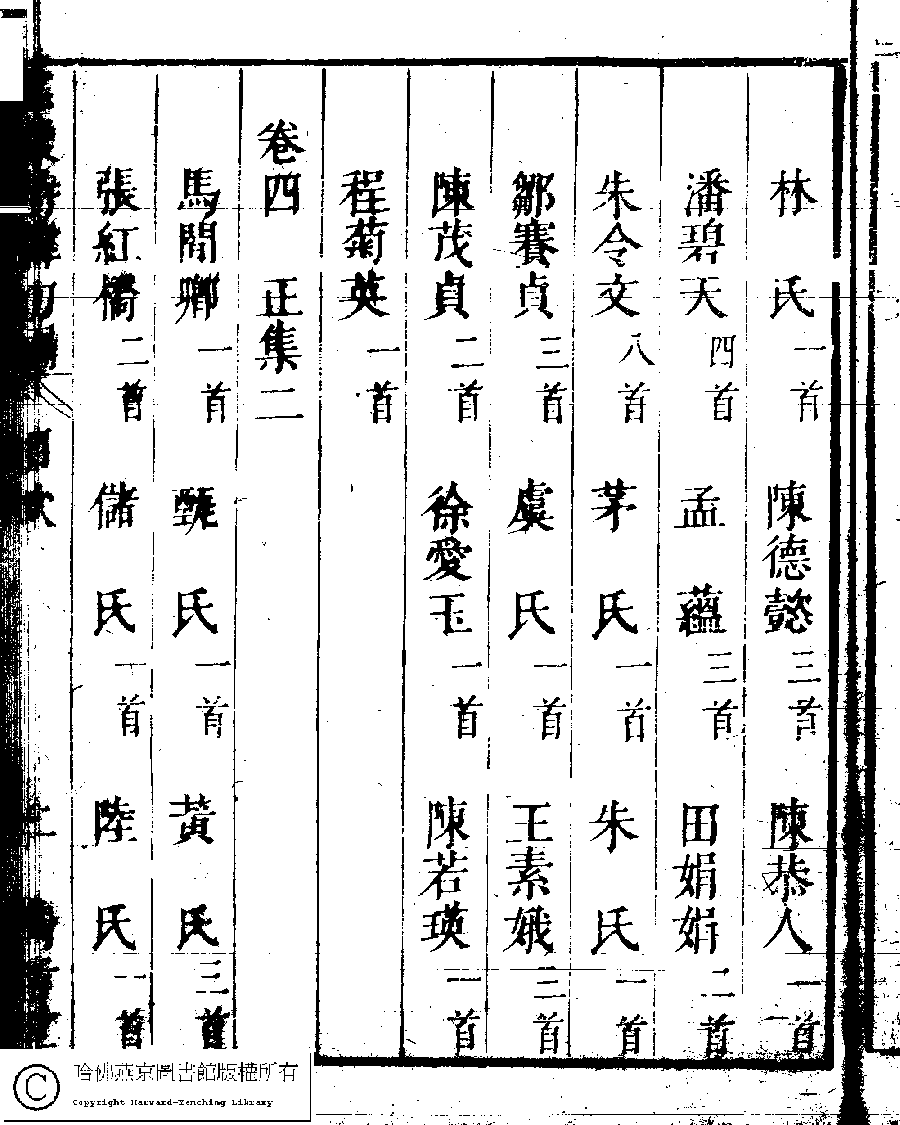 林　氏一首　陳德懿三首　陳恭人一首
潘碧天四首　孟　蘊三首　田娟娟二首
朱令文八首　茅　氏一首　朱　氏一首
鄒賽貞三首　虞　氏一首　王素娥三首
陳茂貞二首　徐愛玉一首　陳若瑛一首
程菊英一首
卷四　正集二
馬閒卿一首　甄　氏一首　黃　氏三首
張紅橋二首　儲　氏一首　陸　氏一首
哈佛燕京圖書館版權所有
Copyright Harvard-Yenching Library